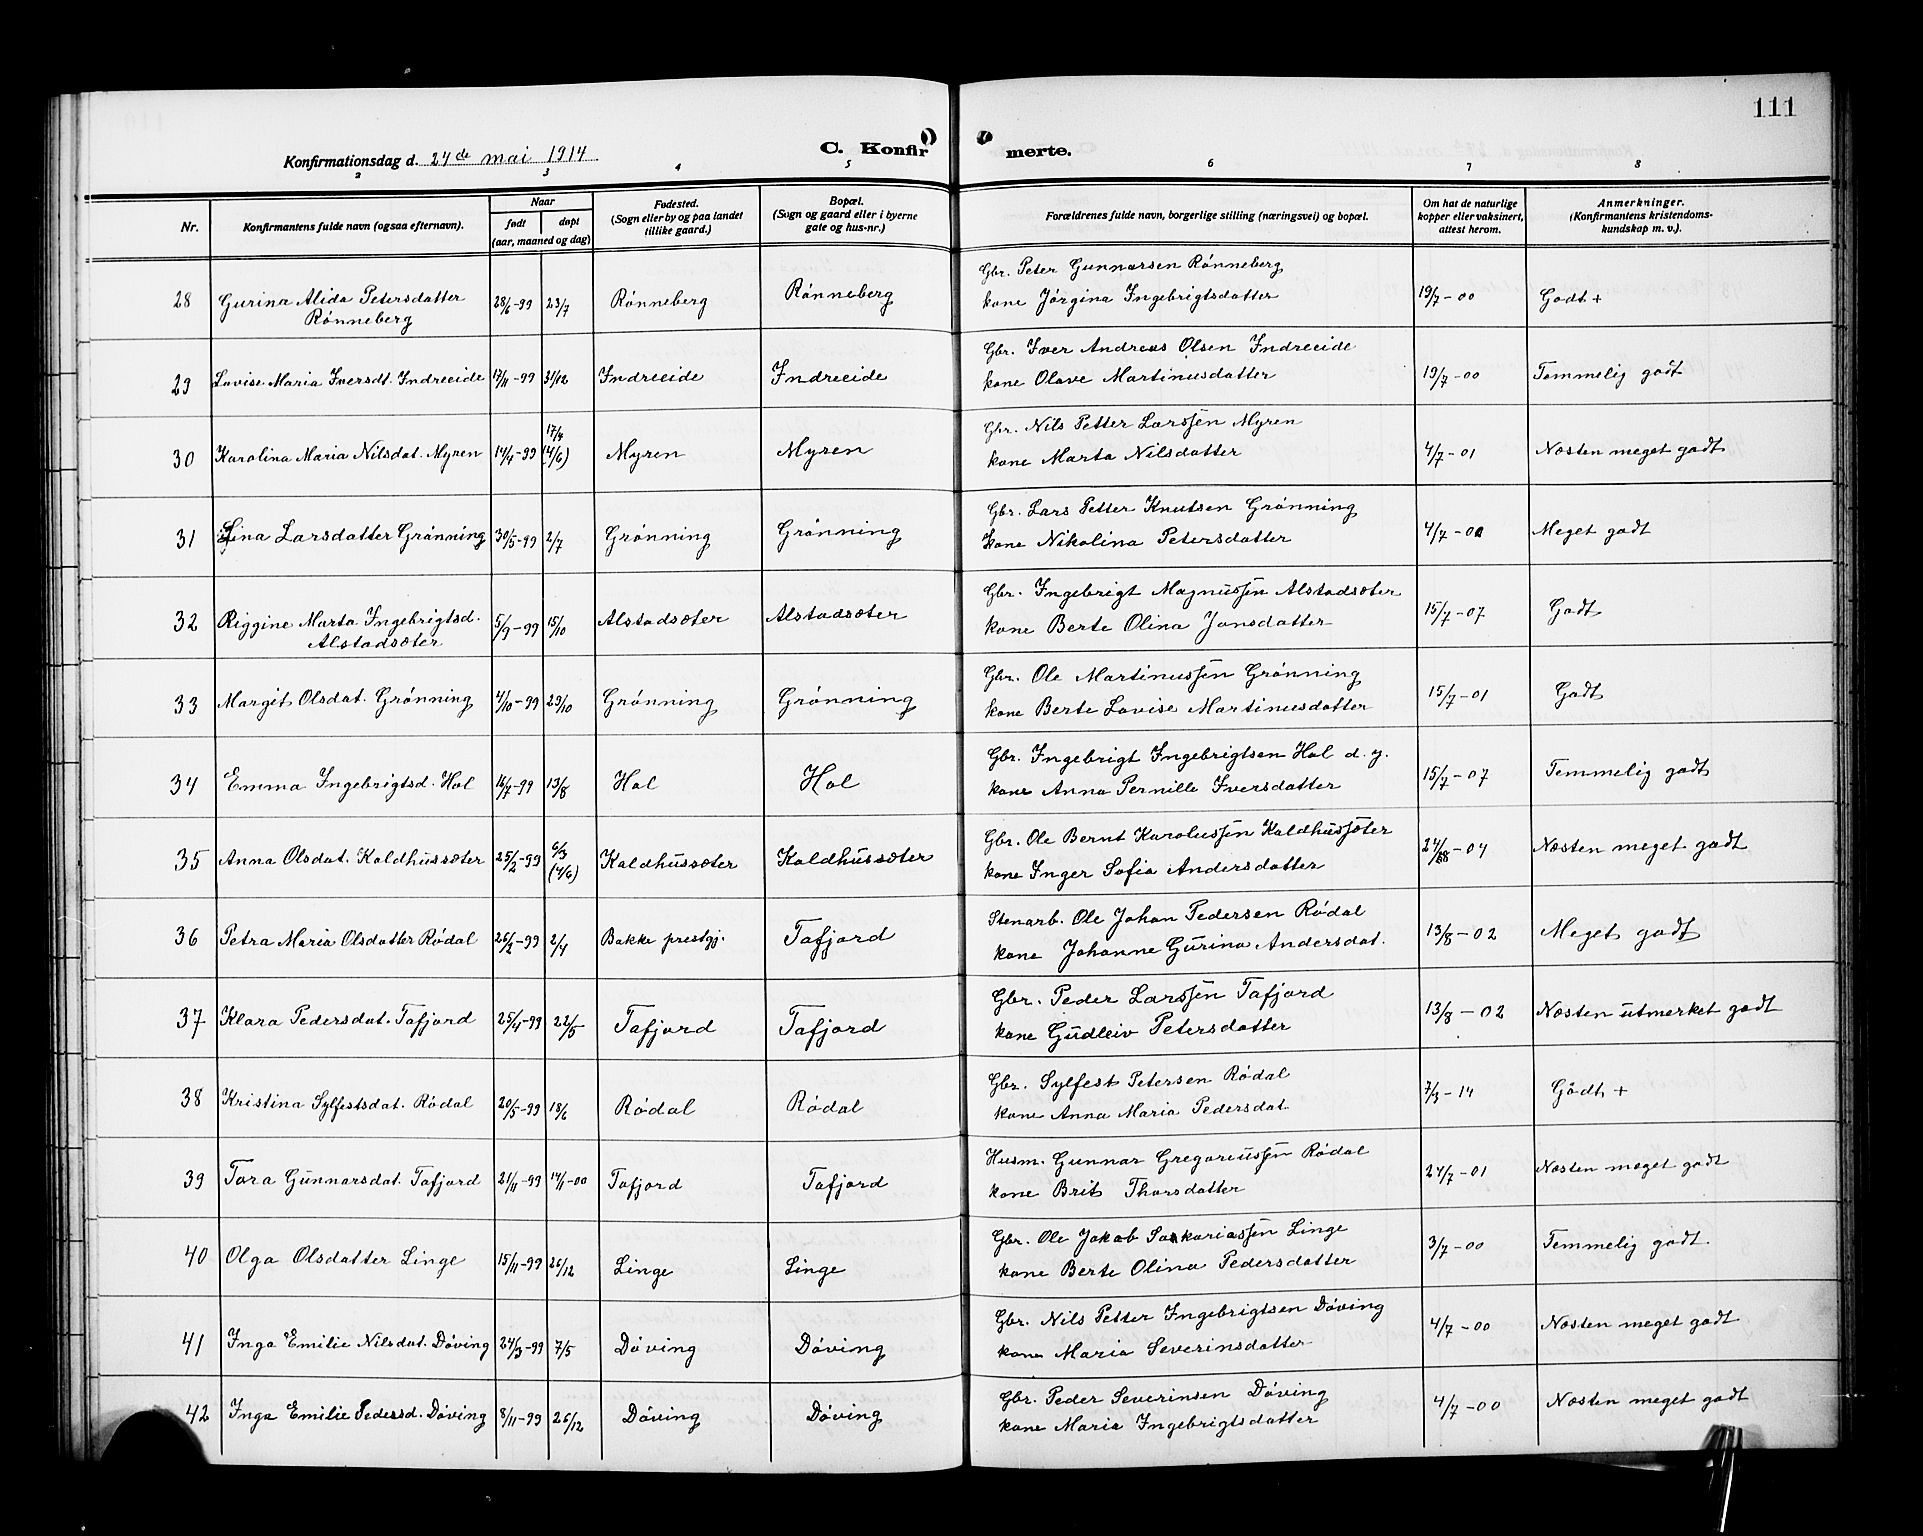 111
Konfirmationsdag d. 24de mai 1914 C. Konfir merte.
2 3 4 5 6 7 8
Nr. Konfirmantens fulde navn (ogsaa efternavn). Naar født døpt (aar, maaned og dag) Fødested. (Sogn eller by og paa landet tillike gaard.) Bopæl. (Sogn og gaard eller i byerne gate og hus-nr.) Forældrenes fulde navn, borgerlige stilling (næringsvei) og bopæl. Om hat de naturlige kopper eller vaksinert, attest herom. Anmerkninger. (Konfirmantens kristendoms-kundskap m. v.).
28 Gurina Alida Petersdatter Rønneberg 28/6-99 23/7 Rønneberg Rønneberg Gbr. Peter Gunnarsen Rønneberg
kone Jørgina Ingebrigtsdatter 19/7-00 Godt +
29 Lovise Maria Iversdt. Indreeide 17/11-99 31/12 Indreeide Indreeide Gbr. Iver Andreas Olsen Indreeide
kone Olave Martinusdatter 19/7-00 Temmelig godt
30 Karolina Maria Nilsdat. Myren 14/4-99 17/4 (4/6) Myren Myren Gbr. Nils Petter Larssen Myren
kone Marta Nilsdatter 4/7-01 Næsten meget godt
31 Lina Larsdatter Grønning 30/5-99 2/7 Grønning Grønning Gbr. Lars Petter Knutsen Grønning
kone Nikolina Petersdatter 4/7-00 Meget godt
32 Riggine Marta Ingebrigtsd. Alstadsæter 5/9-99 15/10 Alstadsæter Alstadsæter Gbr. Ingebrigt Magnussen Alstadsæter
kone Berte Olina Jonsdatter 15/7-07 Godt
33 Margit Olsdat. Grønning 4/10-99 29/10 Grønning Grønning Gbr. Ole Martinussen Grønning
kone Berte Lovise Martinusdatter 15/7-01 Godt
34 Emma Ingebrigtsd. Hol 16/7-99 13/8 Hol Hol Gbr. Ingebrigt Ingebrigtsen Hol d. y.
kone Anna Pernille Iversdatter 15/7-07 Temmelig godt
35 Anna Olsdat. Kaldhussæter 25/2-99 6/3 (4/6) Kaldhussæter Kaldhussæter Gbr. Ole Bernt Karolussen Kaldhussæter
kone Inger Sofia Andersdatter 24/8-04 Næsten meget godt
36 Petra Maria Olsdatter Rødal 26/2-99 2/4 Bakke prestgj. Tafjord Stenarb. Ole Johan Pedersen Rødal
kone Johanne Gurina Andersdat. 13/8-02 Meget godt
37 Klara Pedersdat. Tafjord 25/4-99 22/5 Tafjord Tafjord Gbr. Peder Larssen Tafjord
kone Gudleiv Petersdatter 13/8-02 Næsten utmerket godt
38 Kristina Sylfestsdat. Rødal 20/5-99 18/6 Rødal Rødal Gbr. Sylfest Petersen Rødal
kone Anna Maria Pedersdat. 7/3-14 Godt +
39 Tora Gunnarsdat. Tafjord 21/11-99 14/1-00 Tafjord Tafjord Husm. Gunnar Gregoriussen Rødal
kone Brit Thorsdatter 24/7-01 Næsten meget godt
40 Olga Olsdatter Linge 15/11-99 26/12 Linge Linge Gbr. Ole Jakob Sakariassen Linge
kone Berte Olina Pedersdatter 3/7-00 Temmelig godt.
41 Inga Emilie Nilsdat. Døving 24/3-99 7/5 Døving Døving Gbr. Nils Petter Ingebrigtsen Døving
kone Maria Severinsdatter 4/7-00 Næsten meget godt
42 Inga Emilie Pedersd. Døving 8/11-99 26/12 Døving Døving Gbr. Peder Severinsen Døving
kone Maria Ingebrigtsdatter 4/7-00 Næsten meget godt